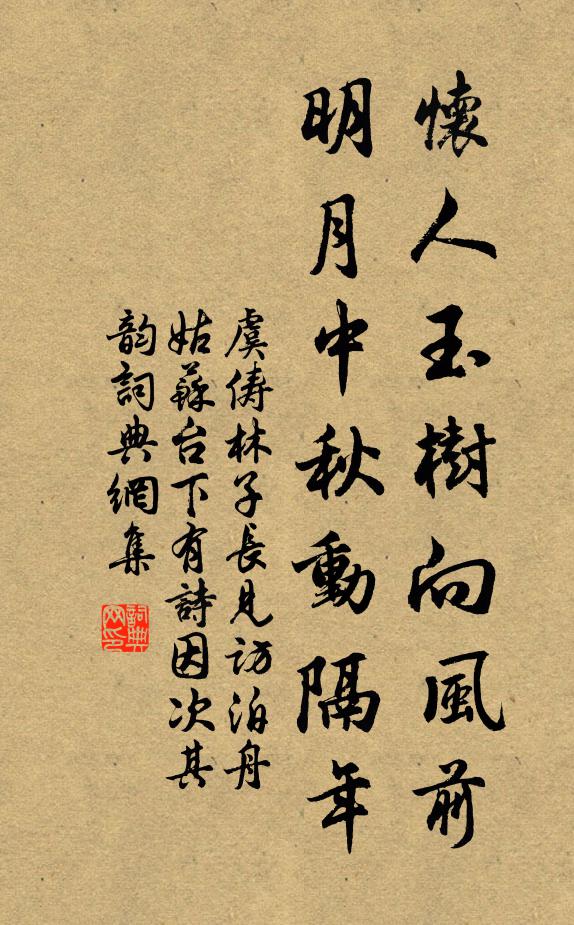 懷人玉樹向風前
明月中秋動隔年
虞儔林子長見訪泊舟
姑蘇台下有詩因次其
韵詞典網集
詞典网印